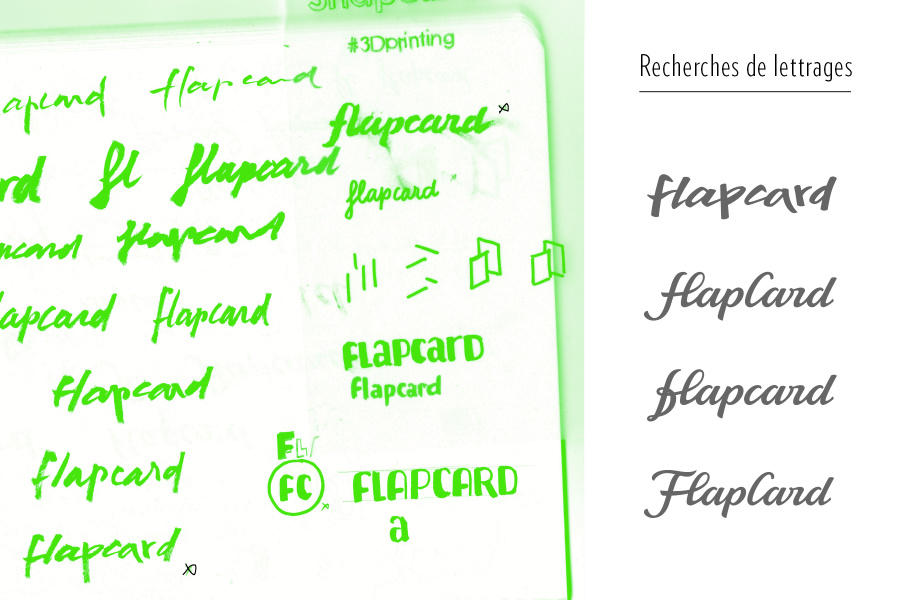 #3Dprinting
apcard flapcard
flapcard
rd fl flapcard
flapcard
card flapcard
apcard flapcard
FLapcarD
Flapcard
Flapcard
flapcard
FL
FC FLAPCARD
a
flapcard
Recherches de lettrages
flapcard
flapCard
flapcard
FlapCard